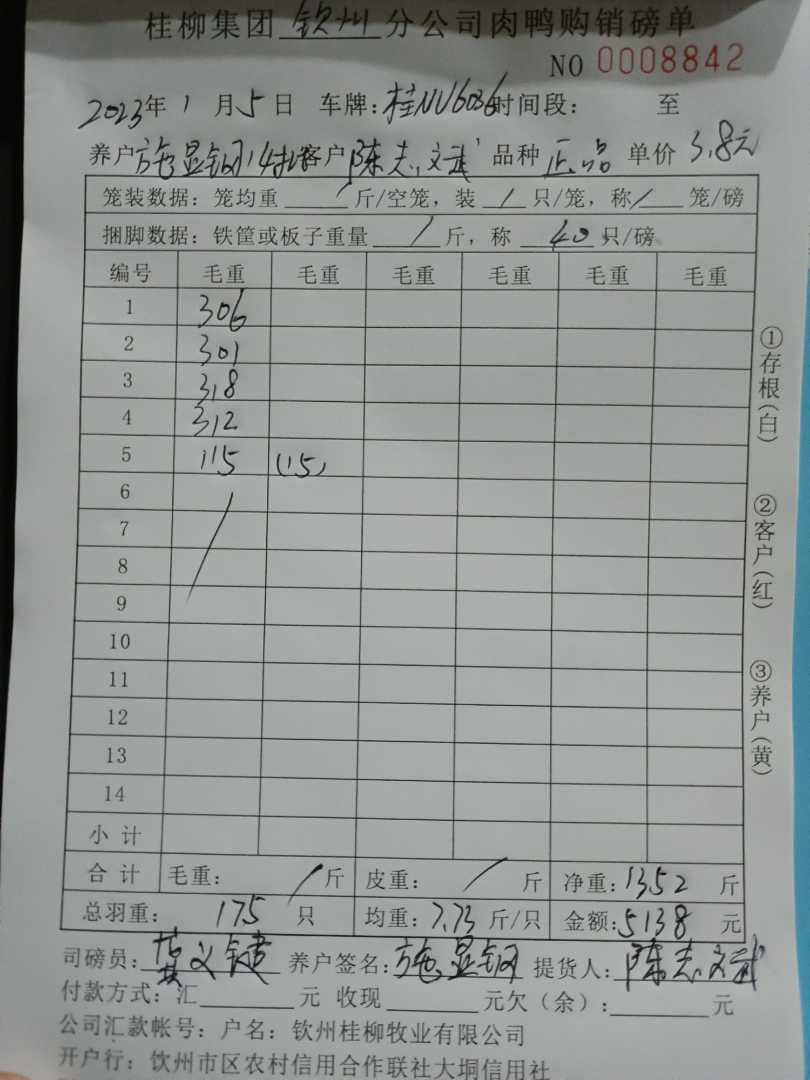 桂柳集团 钦州 分公司肉鸭购销磅单
NO 0008842
2023年 1 月 5 日 车牌:桂NU6036 时间段: 至
养户 施显钢 客户 陈志文武 品种 正品 单价 3.8元
笼装数据:笼均重 / 斤/空笼,装 / 只/笼,称 / 笼/磅
捆脚数据:铁筐或板子重量 / 斤,称 40 只/磅
编号 毛重 毛重 毛重 毛重 毛重 毛重
1 306
2 301
3 318
4 312
5 115 (15)
6
7
8
9
10
11
12
13
14
小计
合计 毛重: / 斤 皮重: / 斤 净重:1352 斤
总羽重: 175 只 均重:7.73 斤/只 金额:5138 元
司磅员: 养户签名:施显钢 提货人:陈志文武
付款方式:汇 元 收现 元欠(余): 元
公司汇款帐号:户名:钦州桂柳牧业有限公司
开户行:钦州市区农村信用合作联社大垌信用社
①存根(白)
②客户(红)
③养户(黄)